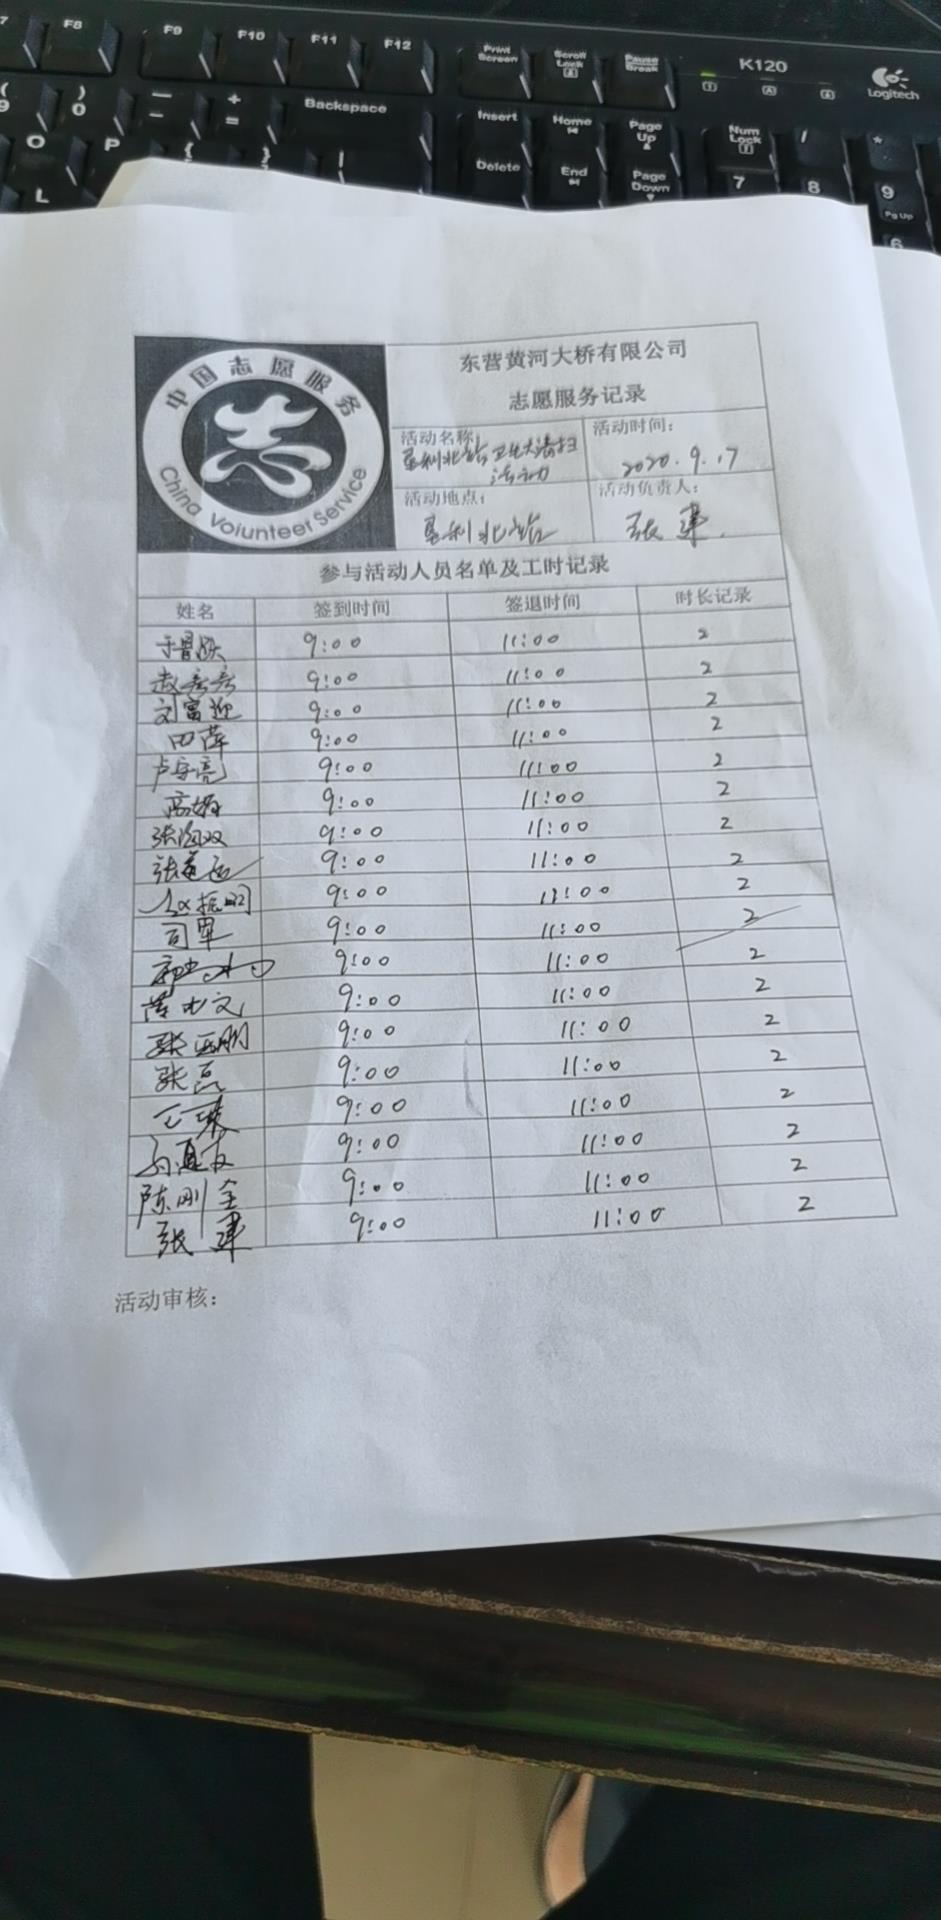 7 F8 F9 F10 F11 F12 Print Screen Scroll Lock Pause Break K120 Logitech
( 9 ) 0 — - + = Backspace Insert Home Page Up Num Lock / *
O P { } | Delete End Page Down 7 8 9 Pg Up
L 6
中国志愿服务
志
China Volunteer Service
东营黄河大桥有限公司
志愿服务记录
活动名称: 垦利北站卫生大清扫
活动
活动时间:
2020.9.17
活动地点:
垦利北站
活动负责人:
张建
参与活动人员名单及工时记录
姓名 签到时间 签退时间 时长记录
9:00 11:00 2
赵彦彦 9:00 11:00 2
刘富迎 9:00 11:00 2
田萍 9:00 11:00 2
卢守亮 9:00 11:00 2
高娟 9:00 11:00 2
张海双 9:00 11:00 2
9:00 11:00 2
9:00 11:00 2
司军 9:00 11:00 2
9:00 11:00 2
9:00 11:00 2
9:00 11:00 2
张磊 9:00 11:00 2
9:00 11:00 2
9:00 11:00 2
陈刚全 9:00 11:00 2
张建 9:00 11:00 2
活动审核: